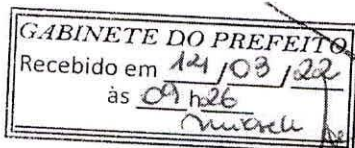 GABINETE DO PREFEITO
Recebido em 14/03/22
às 09 h26